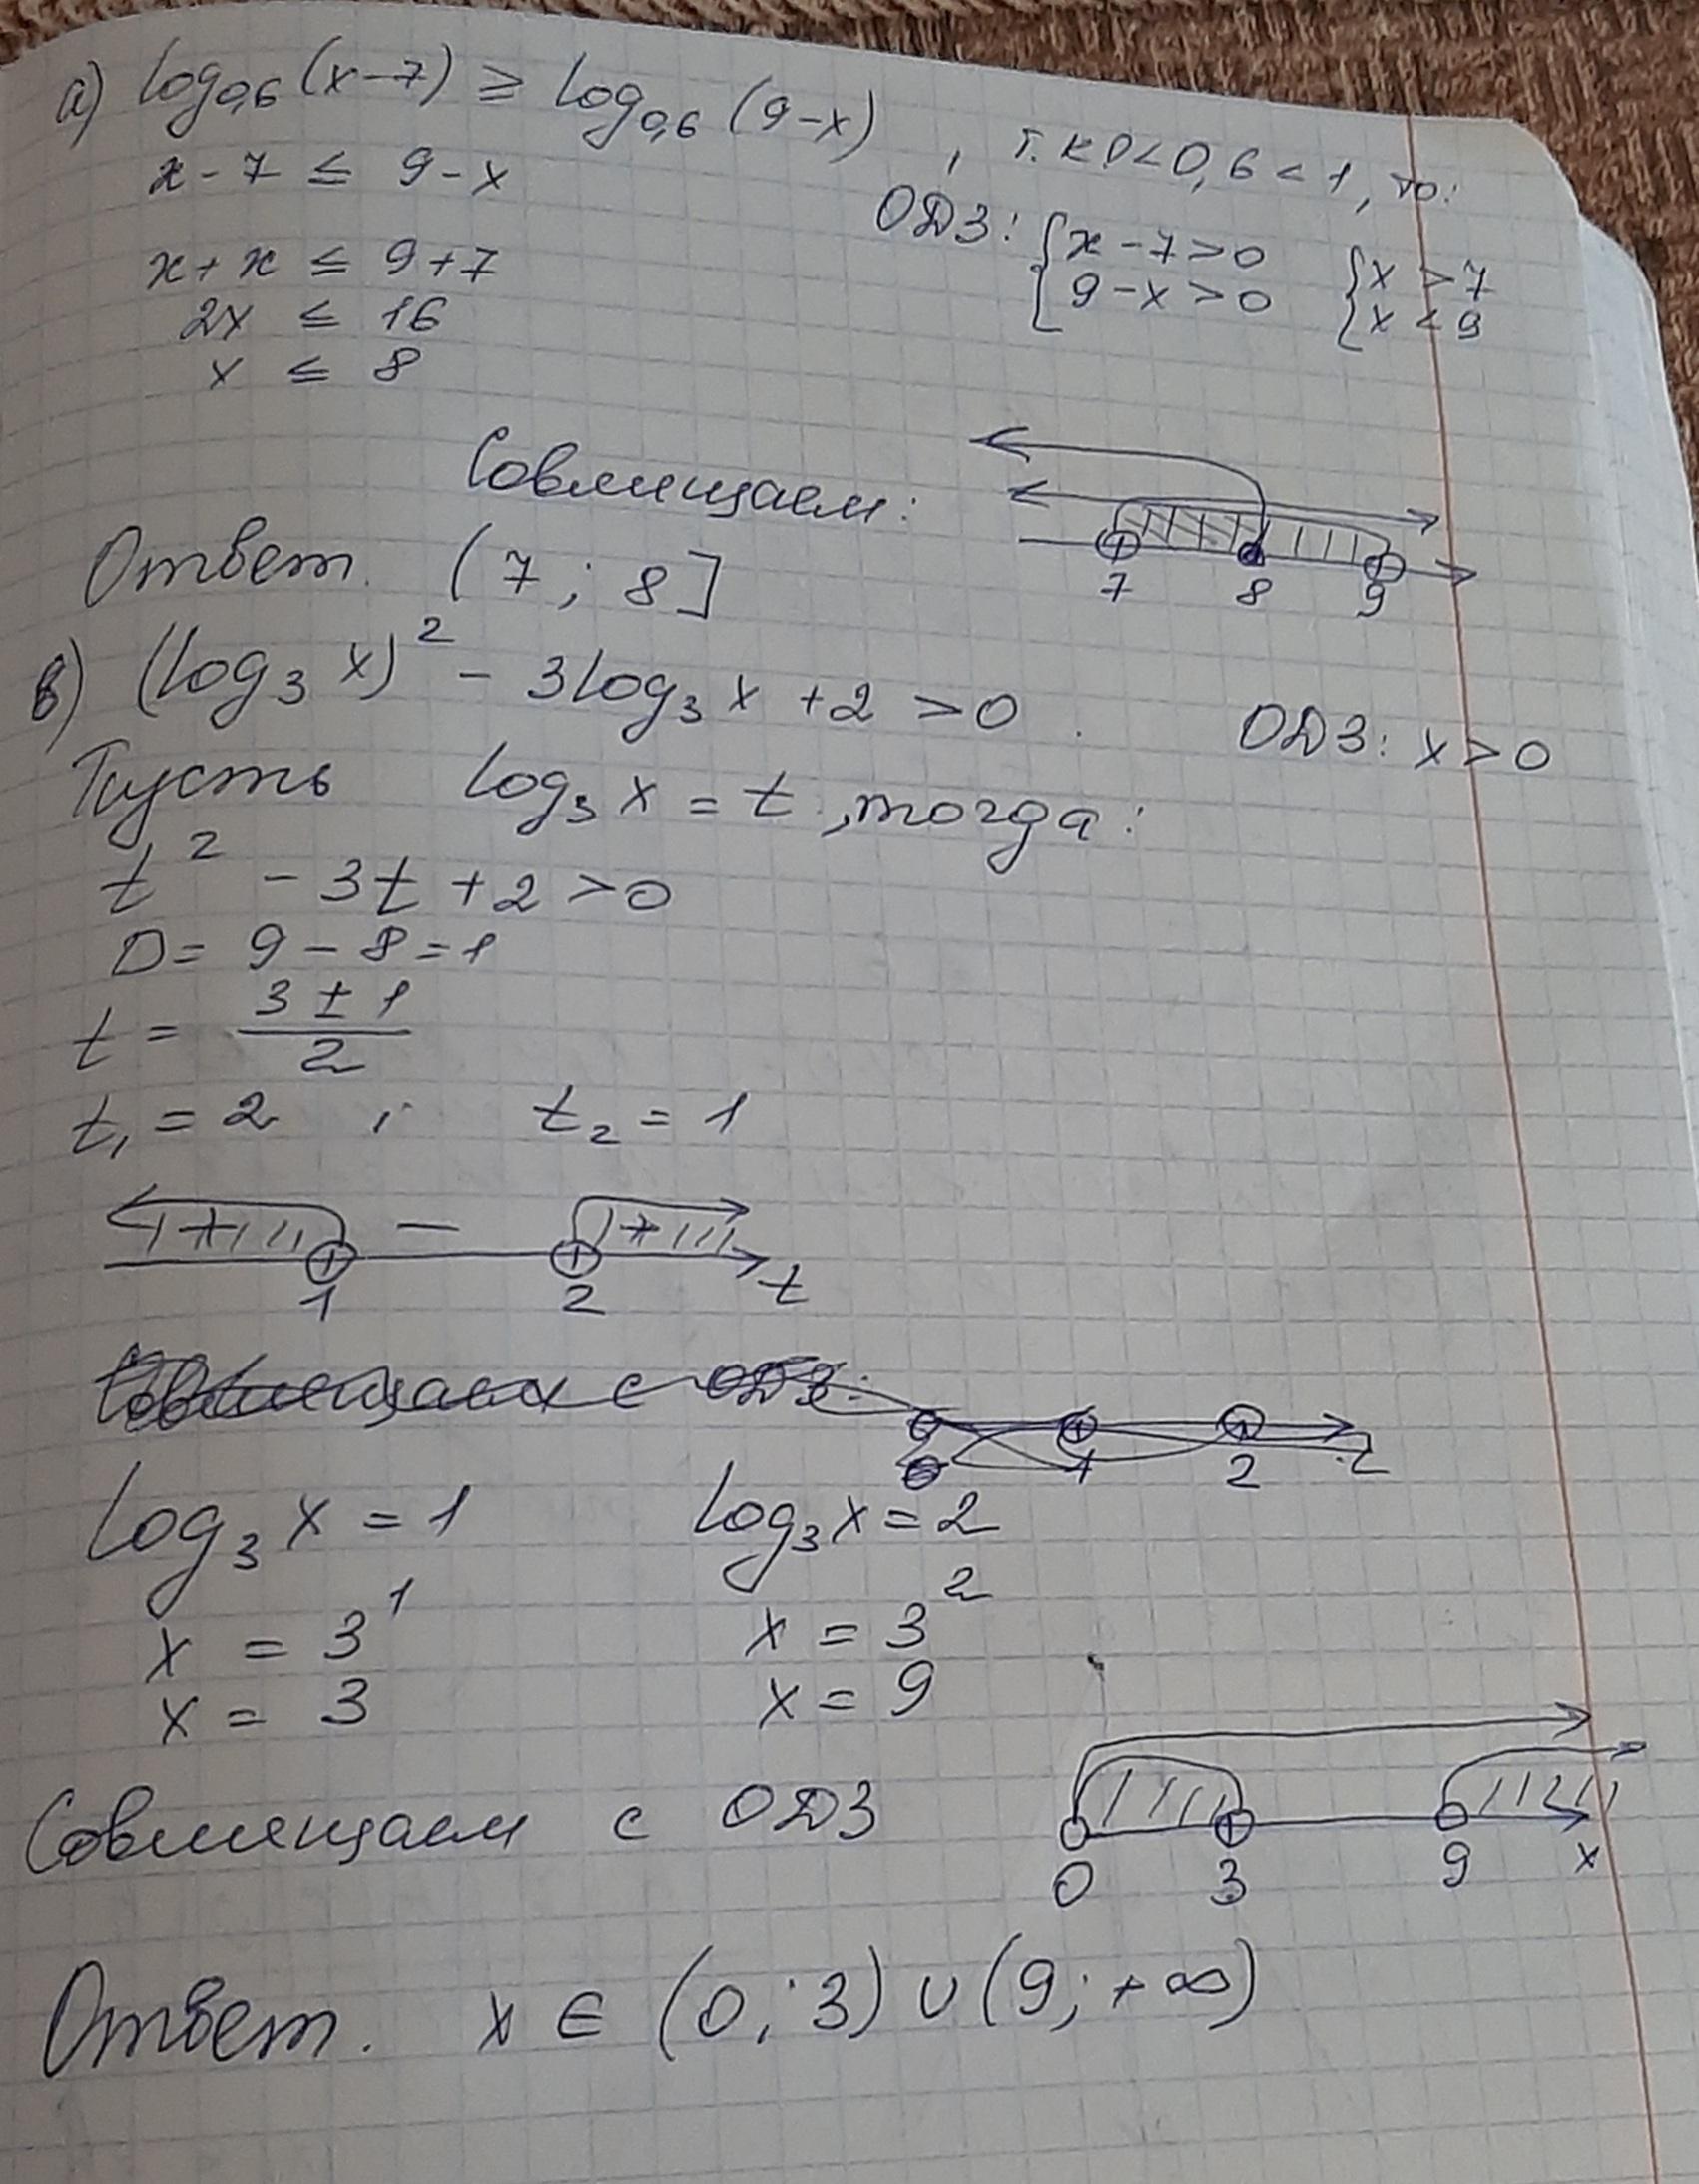 а) log₀,₆ (x-7) ≥ log₀,₆ (9-x) , т.к 0<0,6<1, то:
x - 7 ≤ 9 - x
ОДЗ: { x - 7 > 0 { x > 7
9 - x > 0 x < 9
x + x ≤ 9 + 7
2x ≤ 16
x ≤ 8
Совмещаем:
7 8 9
Ответ. (7; 8]
в) (log₃ x)² - 3log₃ x + 2 > 0. ОДЗ: x > 0
Пусть log₃ x = t, тогда:
t² - 3t + 2 > 0
D = 9 - 8 = 1
t = (3 ± 1)/2
t₁ = 2 ; t₂ = 1
+ - +
1 2 t
Совмещаем с ОДЗ:
1 2
log₃ x = 1 log₃ x = 2
x = 3¹ x = 3²
x = 3 x = 9
Совмещаем с ОДЗ
0 3 9 x
Ответ. x ∈ (0; 3) ∪ (9; +∞)